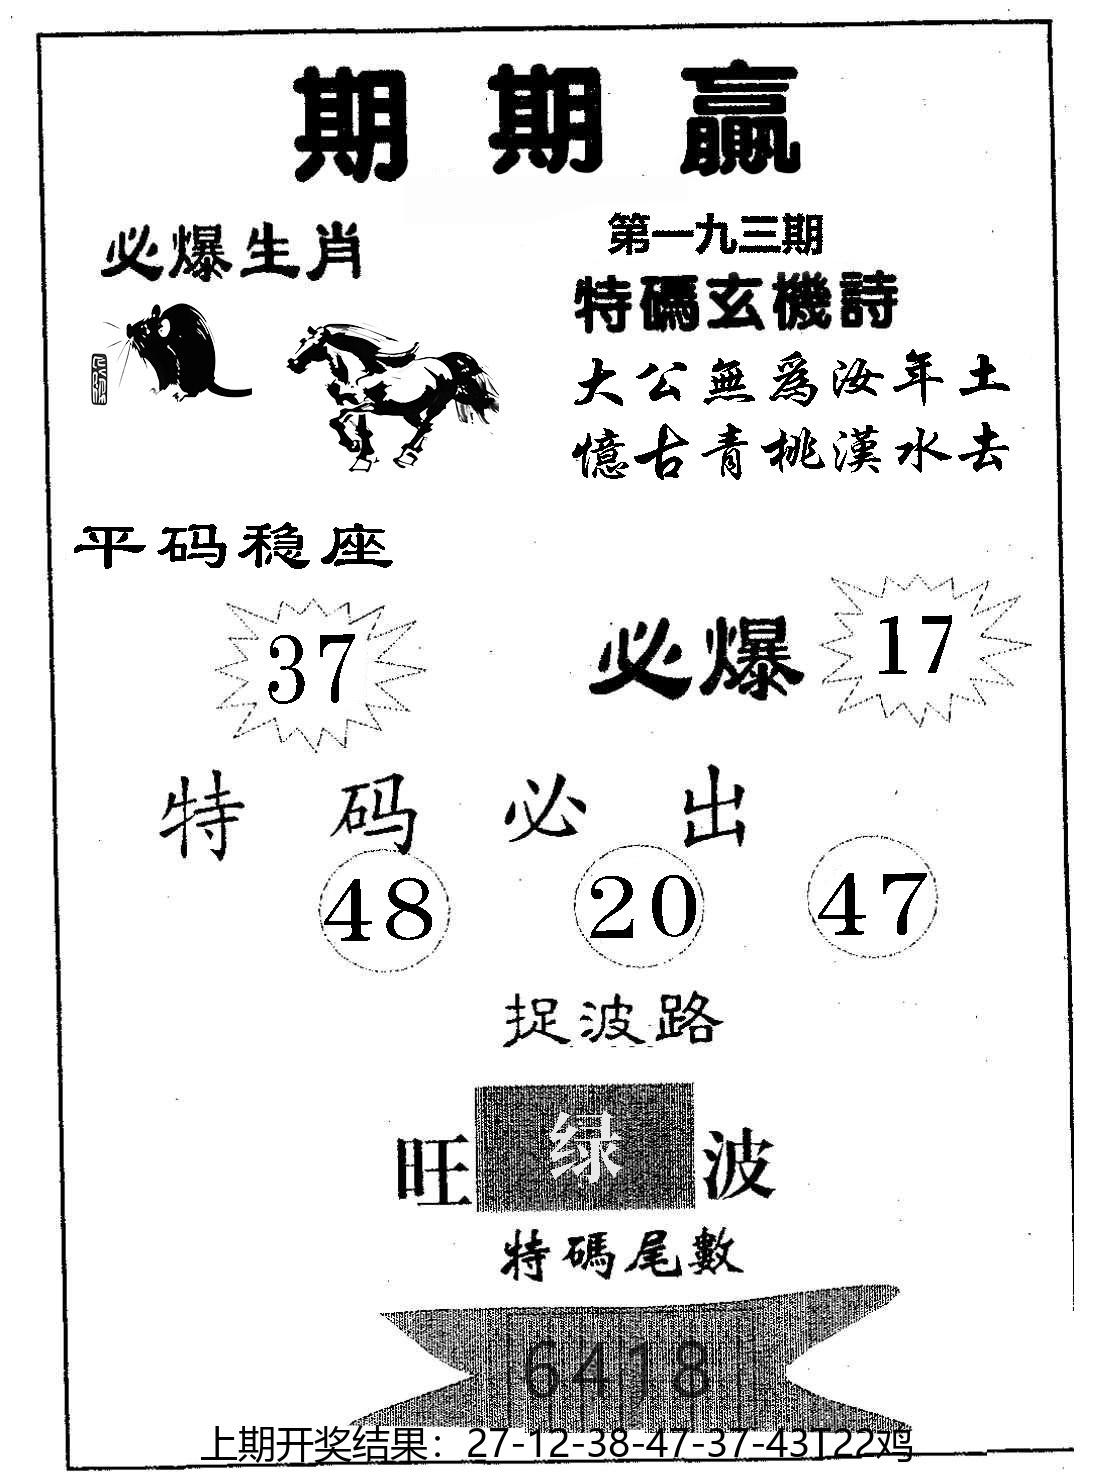 期期赢
必爆生肖
第一九三期
特碼玄機詩
大公無為汝年土
憶古青桃漢水去
平码稳座
37
必爆 17
特码必出
48 20 47
捉波路
旺 绿 波
特碼尾數
6418
上期开奖结果：27-12-38-47-37-43T22鸡